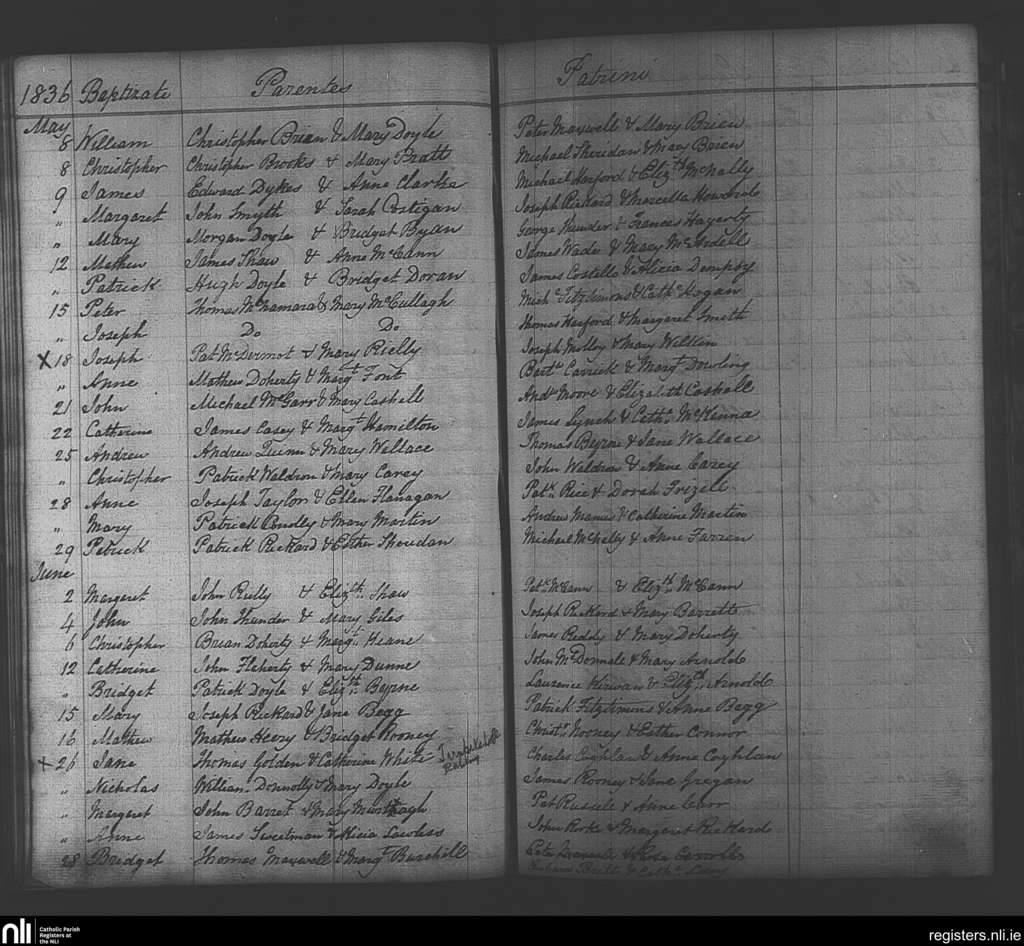 1836 Baptizate Parentes Patrini
May
8 William Christopher Brian & Mary Doyle Peter Maxwell & Mary Brien
8 Christopher Christopher Brooks & Mary Pratt Michael Sheridan & Mary Brien
9 James Edward Dykes & Anne Clarke Michael Harford & Elizth McNally
" Margaret John Smyth & Sarah Costigan Joseph Rickard & Marcella
" Mary Morgan Doyle & Bridget Byan George & Frances Hagerty
12 Mathew James Shaw & Anne McCann James Wade & Mary McArdell
" Patrick Hugh Doyle & Bridget Doran James Costello & Alicia Dempsy
15 Peter Thomas McNamara & Mary McCullagh Michl Fitzsimons & Cathe Hogan
" Joseph Do Do Thomas Harford & Margaret Smith
X 18 Joseph Pat McDermot & Mary Rielly Joseph Molloy & Mary
" Anne Mathew Doherty & Margt Font Bartw Carrick & Margt Dowling
21 John Michael McGarr & Mary Cashell Andw Moore & Elizabeth Cashell
22 Catherine James Casey & Margt Hamilton James Lynch & Cathe McKenna
25 Andrew Andrew Quinn & Mary Wallace Thomas Byrne & Jane Wallace
" Christopher Patrick Waldron & Mary Carey John Waldron & Anne Carey
28 Anne Joseph Taylor & Ellen Flanagan Patk Rice & Dorah Frizell
" Mary Patrick & Mary Martin Andrew & Catherine Martin
29 Patrick Patrick Rickard & Esther Sheridan Michael McNally & Anne Farren
June
2 Margaret John Reilly & Elizth Shaw Patk McCann & Elizth McCann
4 John John Thunder & Mary Giles Joseph Rickard & Mary Barrett
6 Christopher Brian Doherty & Margt Keane James Reddy & Mary Doherty
12 Catherine John Flaherty & Mary Dunne John McDonnele & Mary Arnold
" Bridget Patrick Doyle & Elizth Byrne Laurence Kirwan & Elizth Arnold
15 Mary Joseph Rickard & Jane Begg Patrick Fitzsimons & Anne Begg
16 Mathew Mathew Heery & Bridget Rooney Christr Rooney & Esther Connor
+ 26 Jane Thomas Golden & Catherine White Charles Coghlan & Anne Coghlan
" Nicholas William Donnolly & Mary Doyle James Rooney & Jane Gregan
" Margaret John Barret & Mary Murtagh Pat Russele & Anne Carr
" Anne James Sweetman & Alicia Lawless John Rorke & Margaret Rickard
28 Bridget Thomas Maxwell & Margt Burchill Peter & Rose Carroll
& Cathe
nli Catholic Parish
Registers at
the NLI
registers.nli.ie